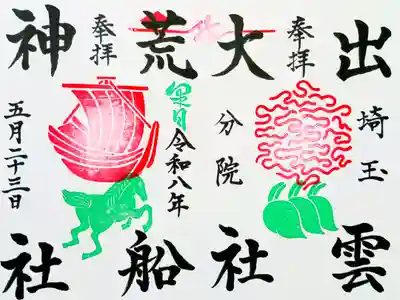 出雲
埼玉
奉拝
大社
分院
令和八年
荒船
奉拝
神社
五月二十三日